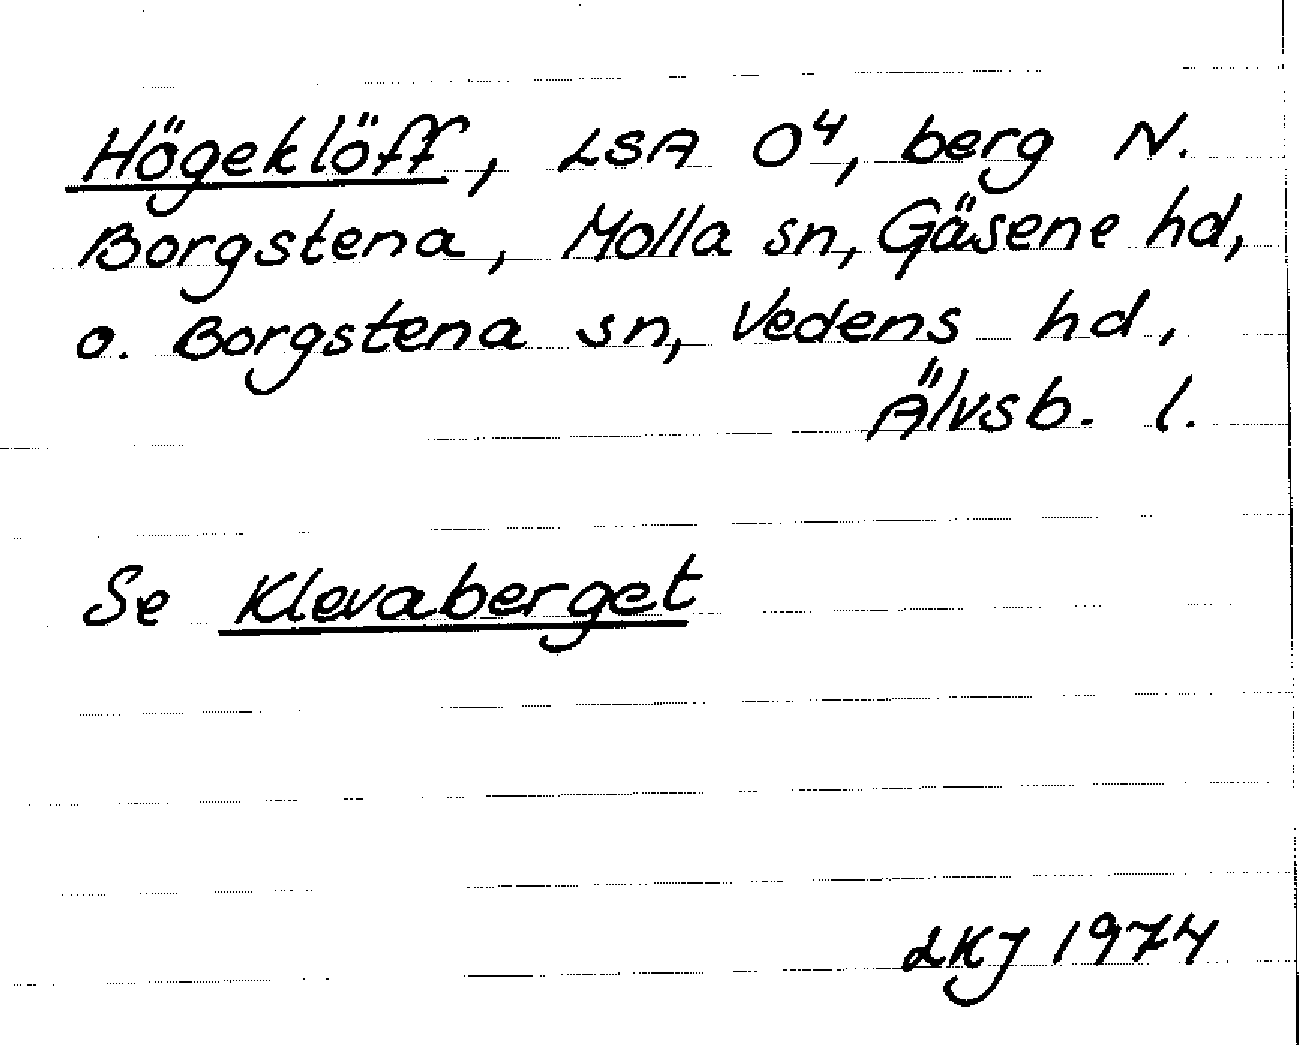 Högeklöff, LSA O⁴, berg N.
Borgstena, Molla sn, Gäsene hd,
o. Borgstena sn, Vedens hd,
Älvsb. l.
Se Klevaberget
LKJ 1974